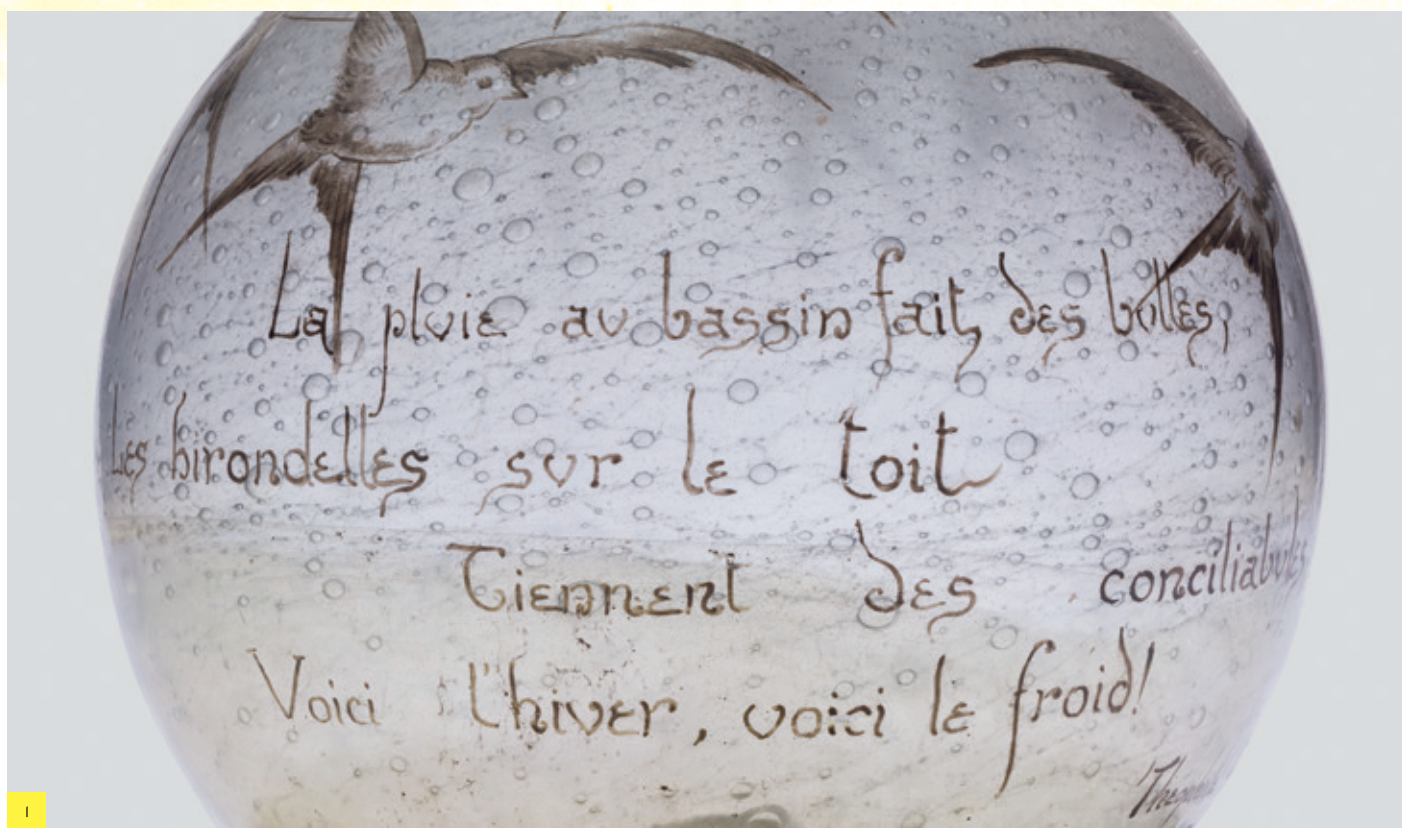 La pluie au bassin fait des bulles;
Les hirondelles sur le toit
Tiennent des conciliabules
Voici l'hiver, voici le froid!
1